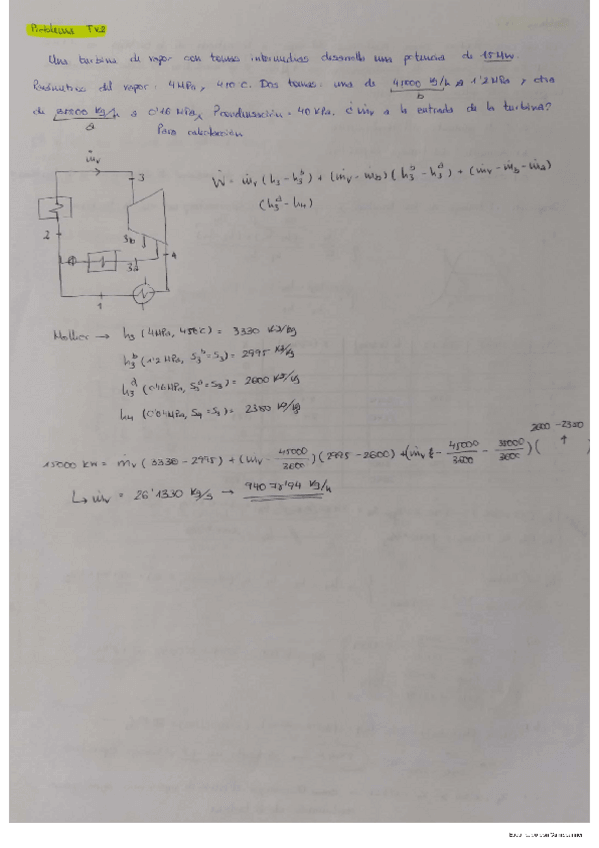 Problema TV.2
Una turbina de vapor con tomas intermedias desarrolla una potencia de 15 MW.
Parámetros del vapor: 4 MPa, 450 C. Dos tomas: una de 45000 kg/h a 1'2 MPa, y otra
b
de 35000 kg/h a 0'16 MPa, Pcondensación = 40 KPa. ¿ ṁv a la entrada de la turbina?
a
Para calefacción
ṁv
3
Ẇ = ṁv (h3 - h3ᵇ) + (ṁv - ṁb) (h3ᵇ - h3ᵃ) + (ṁv - ṁb - ṁa)
(h3ᵃ - h4)
2
3b
3a
4
1
Mollier → h3 (4MPa, 450C) = 3330 KJ/kg
h3ᵇ (1'2 MPa, S3ᵇ = S3) = 2995 KJ/kg
h3ᵃ (0'16 MPa, S3ᵃ = S3) = 2600 KJ/kg
h4 (0'04 MPa, S4 = S3) = 2380 KJ/kg
2600 - 2380
15000 KW = ṁv (3330 - 2995) + (ṁv - 45000/3600) (2995 - 2600) + (ṁv - 45000/3600 - 35000/3600) ( ↑ )
↳ ṁv = 26'1330 kg/s → 94078'94 kg/h